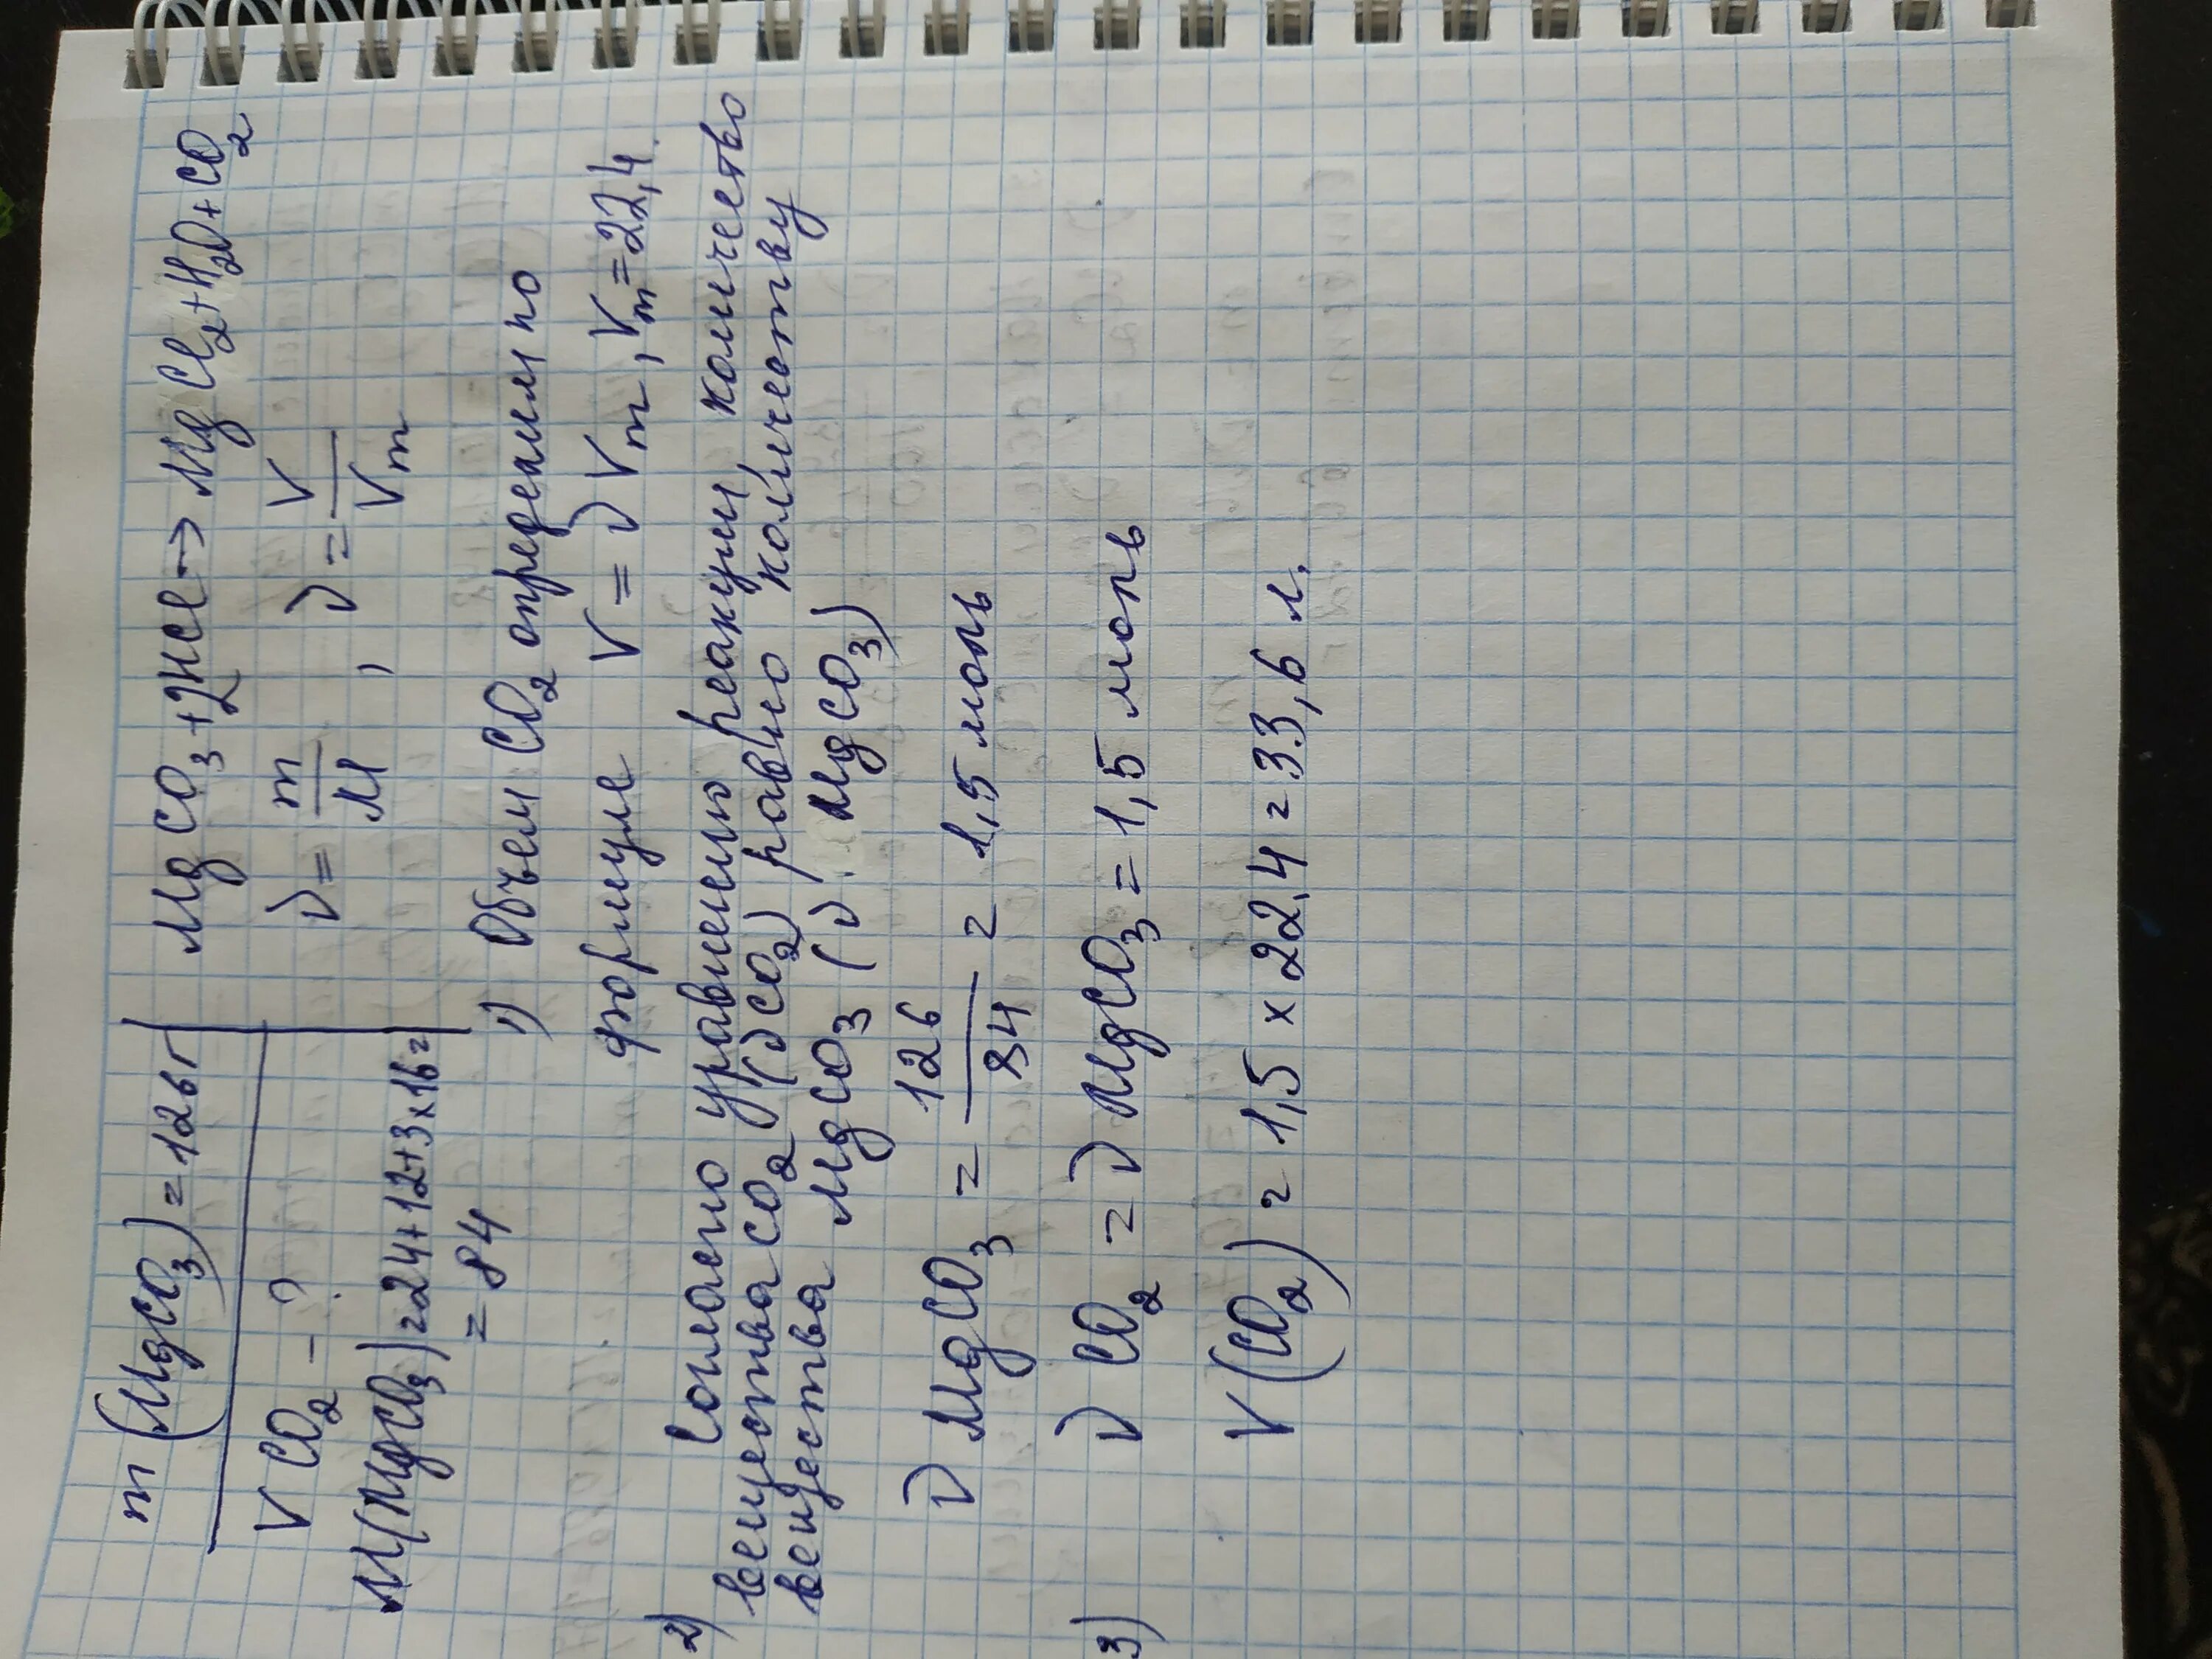 m (MgCO₃) = 126 г
V CO₂ - ?
M(MgCO₃) = 24+12+3×16 =
= 84
MgCO₃ + 2HCl → MgCl₂ + H₂O + CO₂
ν = m/M , ν = V/Vm
1) Объем CO₂ определим по
формуле V = ν Vm, Vm = 22,4.
2) Согласно уравнению реакции количество
вещества CO₂ (νCO₂) равно количеству
вещества MgCO₃ (ν MgCO₃)
ν MgCO₃ = 126/84 = 1,5 моль
3) ν CO₂ = ν MgCO₃ = 1,5 моль
V (CO₂) = 1,5 × 22,4 = 33,6 л.